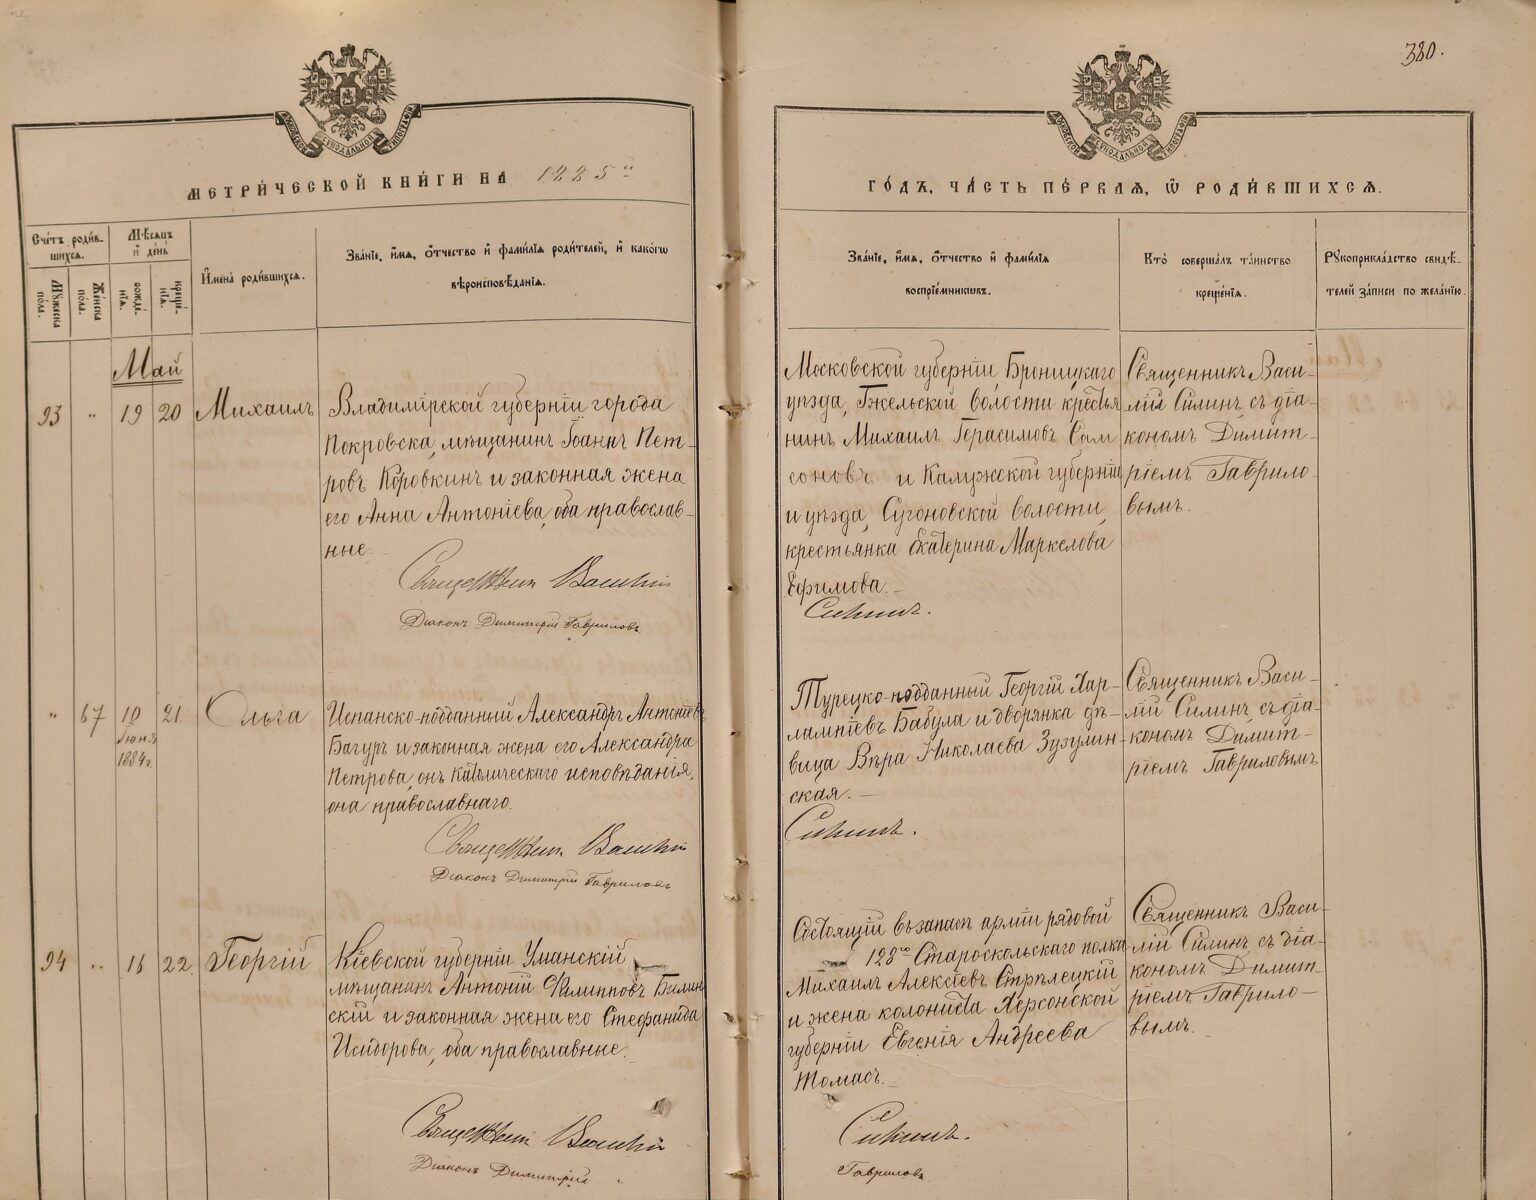 380.
МОСКОВСКОЙ СѴНОДАЛЬНОЙ ТИПОГРАФІИ
МОСКОВСКОЙ СѴНОДАЛЬНОЙ ТИПОГРАФІИ
МЕТРИ́ЧЕСКОЙ КНИ́ГИ НА 1885й
ГО́ДЪ, ЧА́СТЬ ПЕ́РВАЯ, Ѽ РОДИ́ВШИХСЯ.
Сче́тъ роди́в-
шихся.
Му́жеска
по́ла.
Же́нска
по́ла.
Мѣ́сяцъ
и҆ де́нь
рожде́-
нїя.
креще́-
нїя.
И҆мена̀ роди́вшихся.
Зва́нїе, и҆́мя, ѻ҆́тчество и҆ фами́лїя роди́телей, и҆ како́гѡ
вѣроисповѣ́данїя.
Зва́нїе, и҆́мя, ѻ҆́тчество и҆ фами́лїя
воспрїе́мникѡвъ.
Кто̀ соверша́лъ та́инство
креще́нїя.
Рꙋкоприкла́дство свидѣ́-
телей за́писи по жела́нїю.
Май
93 " 19 20 Михаилъ
Владимірской губерніи города
Покровска, мѣщанинъ Іоаннъ Пет-
ровъ Коровкинъ и законная жена
его Анна Антоніева, оба православ-
ные.
Священникъ Василій
Діаконъ Димитрій Гавриловъ
Московской губерніи, Бронницкаго
уѣзда, Гжельской волости крестья
нинъ Михаилъ Герасимовъ Сам
соновъ и Калужской губерніи
и уѣзда, Сугоновской волости,
крестьянка Екатерина Маркелова
Ефимова.
Силинъ.
Священникъ Васи-
лій Силинъ, съ діа-
кономъ Димит-
ріемъ Гаврило-
вымъ.
" 67 10 21 Ольга
Іюня
1884г.
Испанско-подданный Александръ Антоніевъ
Багуръ и законная жена его Александра
Петрова, онъ католическаго исповѣданія,
она православнаго.
Священникъ Василій
Діаконъ Димитрій Гавриловъ
Турецко-подданный Георгій Хар-
лампіевъ Бабула и дворянка дѣ-
вица Вѣра Николаева Зузулин-
ская.
Силинъ.
Священникъ Васи-
лій Силинъ, съ діа-
кономъ Димит-
ріемъ Гавриловымъ
94 " 16 22 Георгій
Кіевской губерніи Уманскій
мѣщанинъ Антоній Филипповъ Билин
скій и законная жена его Стефанида
Исидорова, оба православные.
Священникъ Василій
Діаконъ Димитрій
Состоящій въ запасѣ арміи рядовой
128го Старооскольскаго полка
Михаилъ Алексіевъ Стрѣлецкій
и жена колониста Херсонской
губерніи Евгенія Андреева
Томасъ.
Силинъ.
Гавриловъ
Священникъ Васи-
лій Силинъ, съ діа-
кономъ Димит-
ріемъ Гаврило-
вымъ.